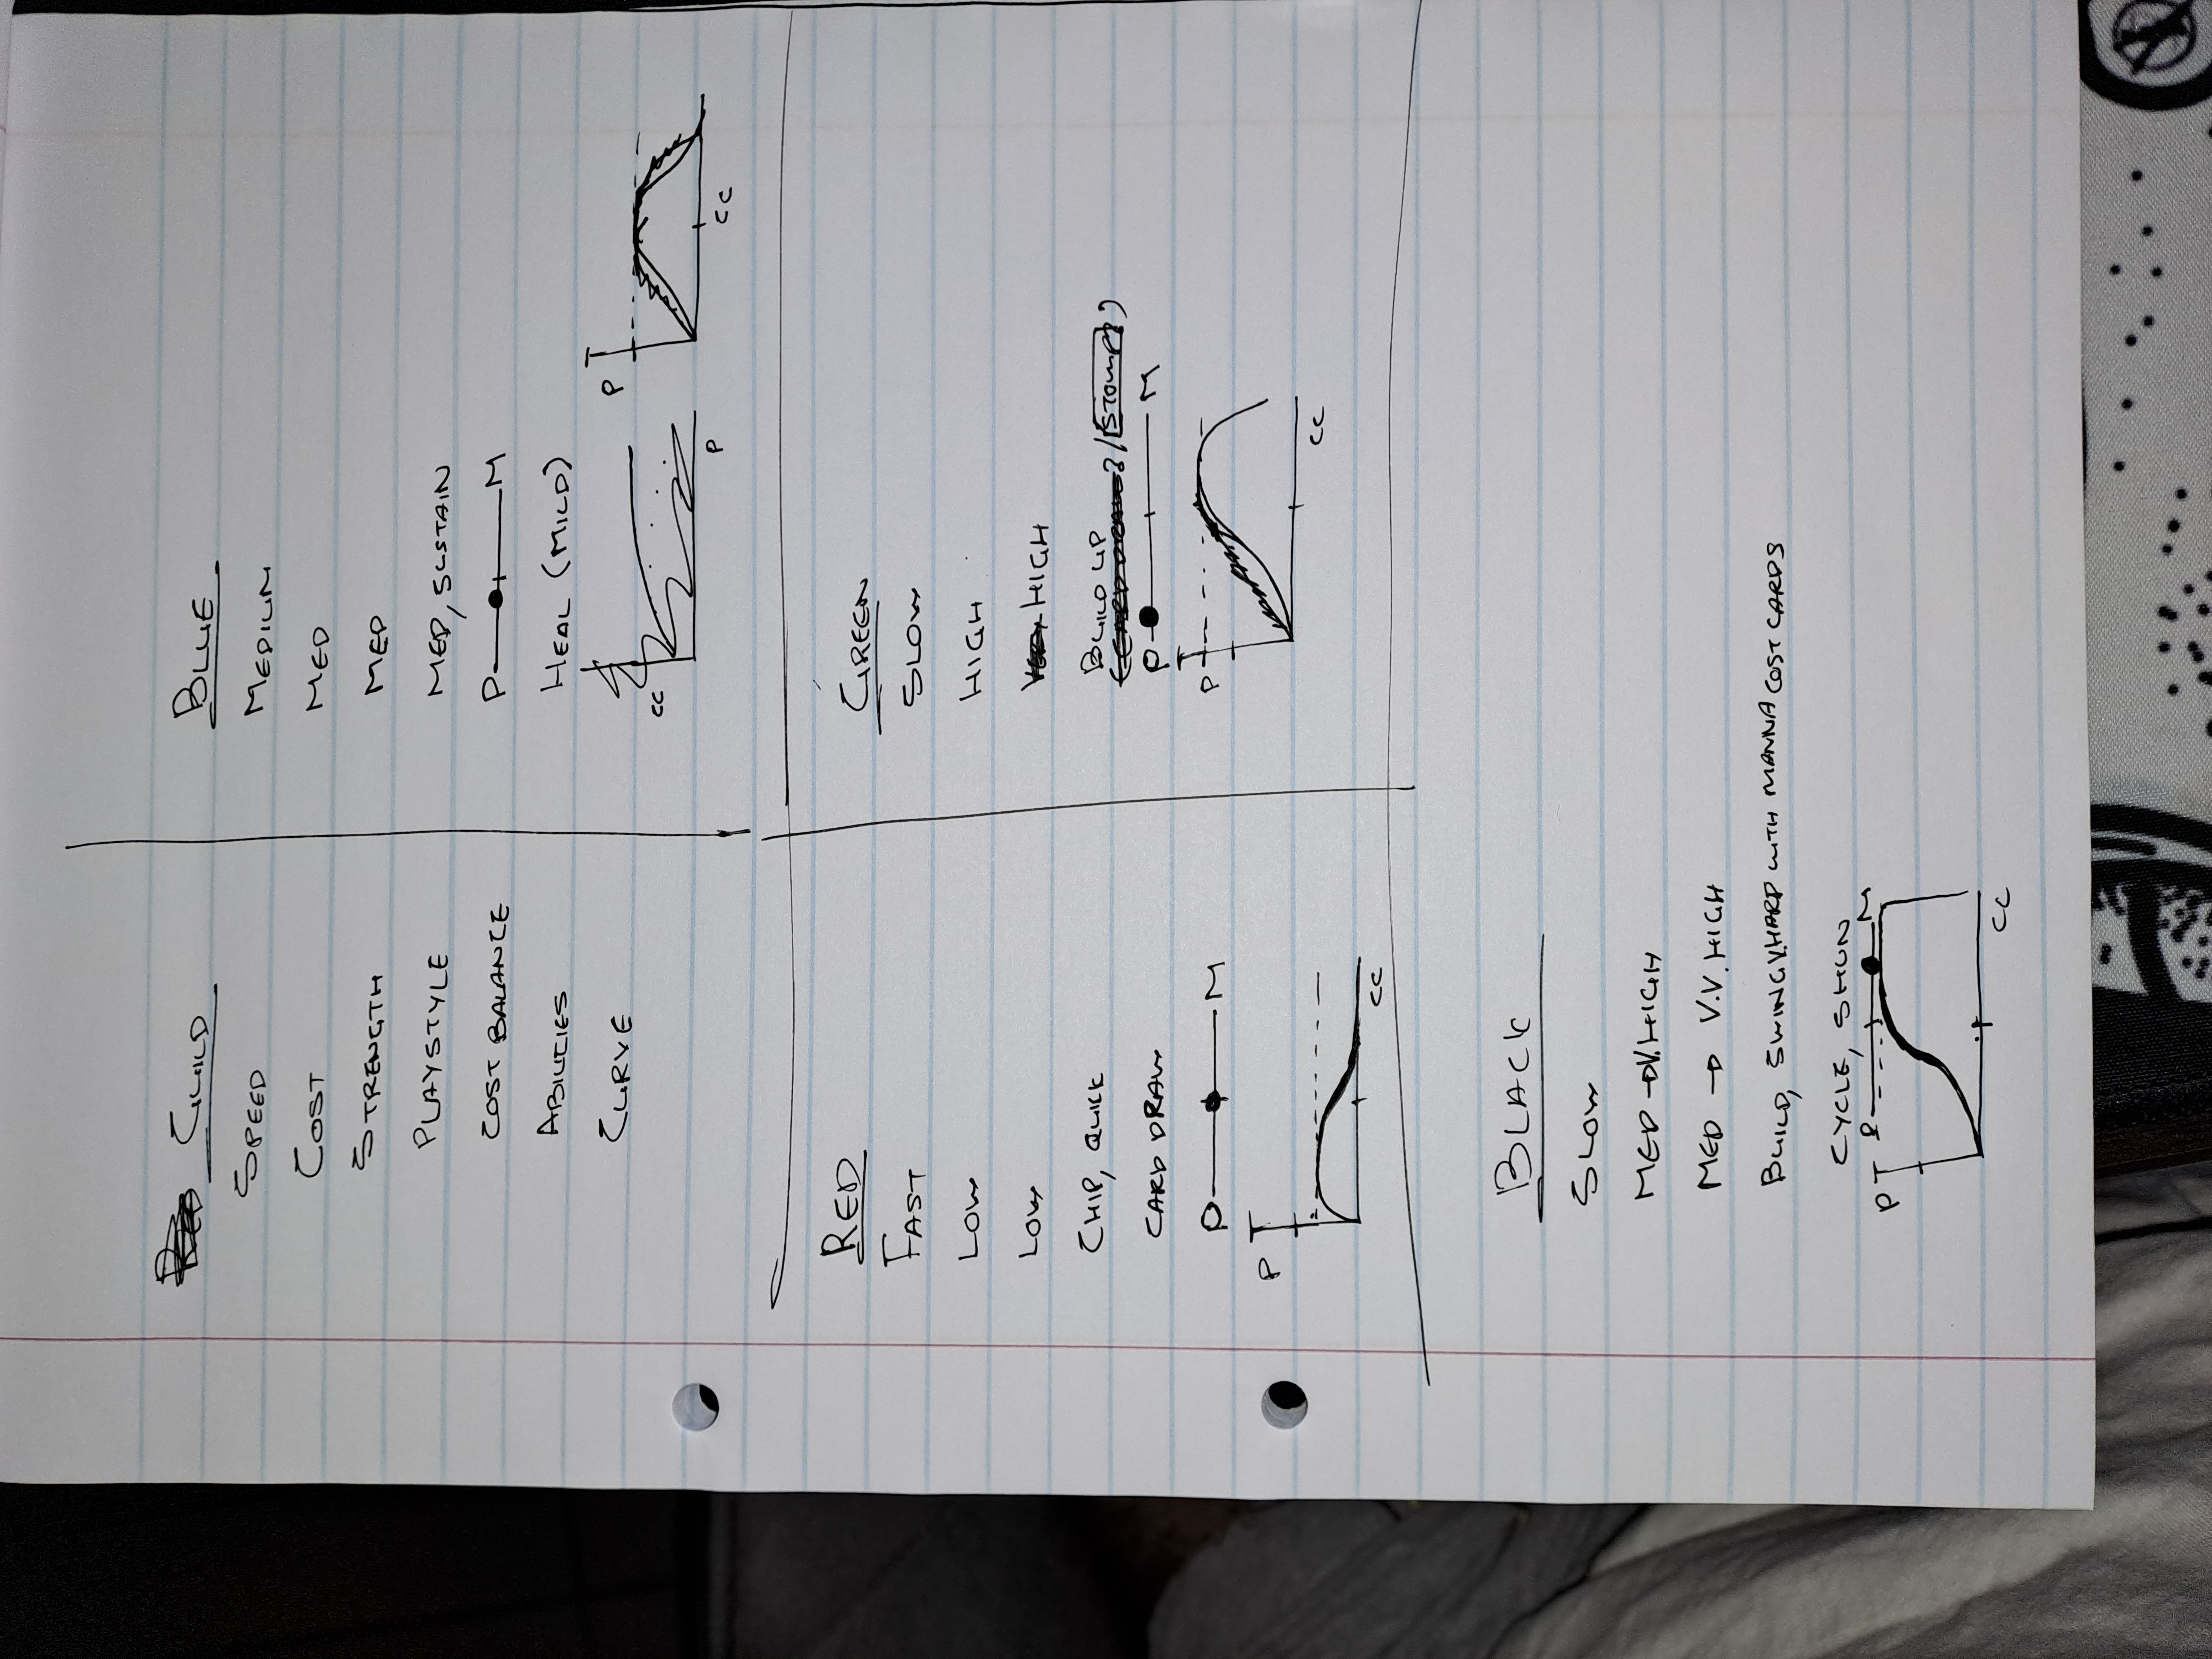 GUILD
SPEED
COST
STRENGTH
PLAYSTYLE
COST BALANCE
ABILITIES
CURVE
BLUE
MEDIUM
MED
MED
MED, SUSTAIN
P M
HEAL (MILD)
CC
P
P
CC
RED
FAST
LOW
LOW
CHIP, QUICK
CARD DRAW
P M
P
CC
GREEN
SLOW
HIGH
HIGH
BUILD UP
/ STOMP?)
P M
P
CC
BLACK
SLOW
MED → V.HIGH
MED → V.V.HIGH
BUILD, SWING V.HARD WITH MANNA COST CARDS
CYCLE, SHUN
P M
P
CC